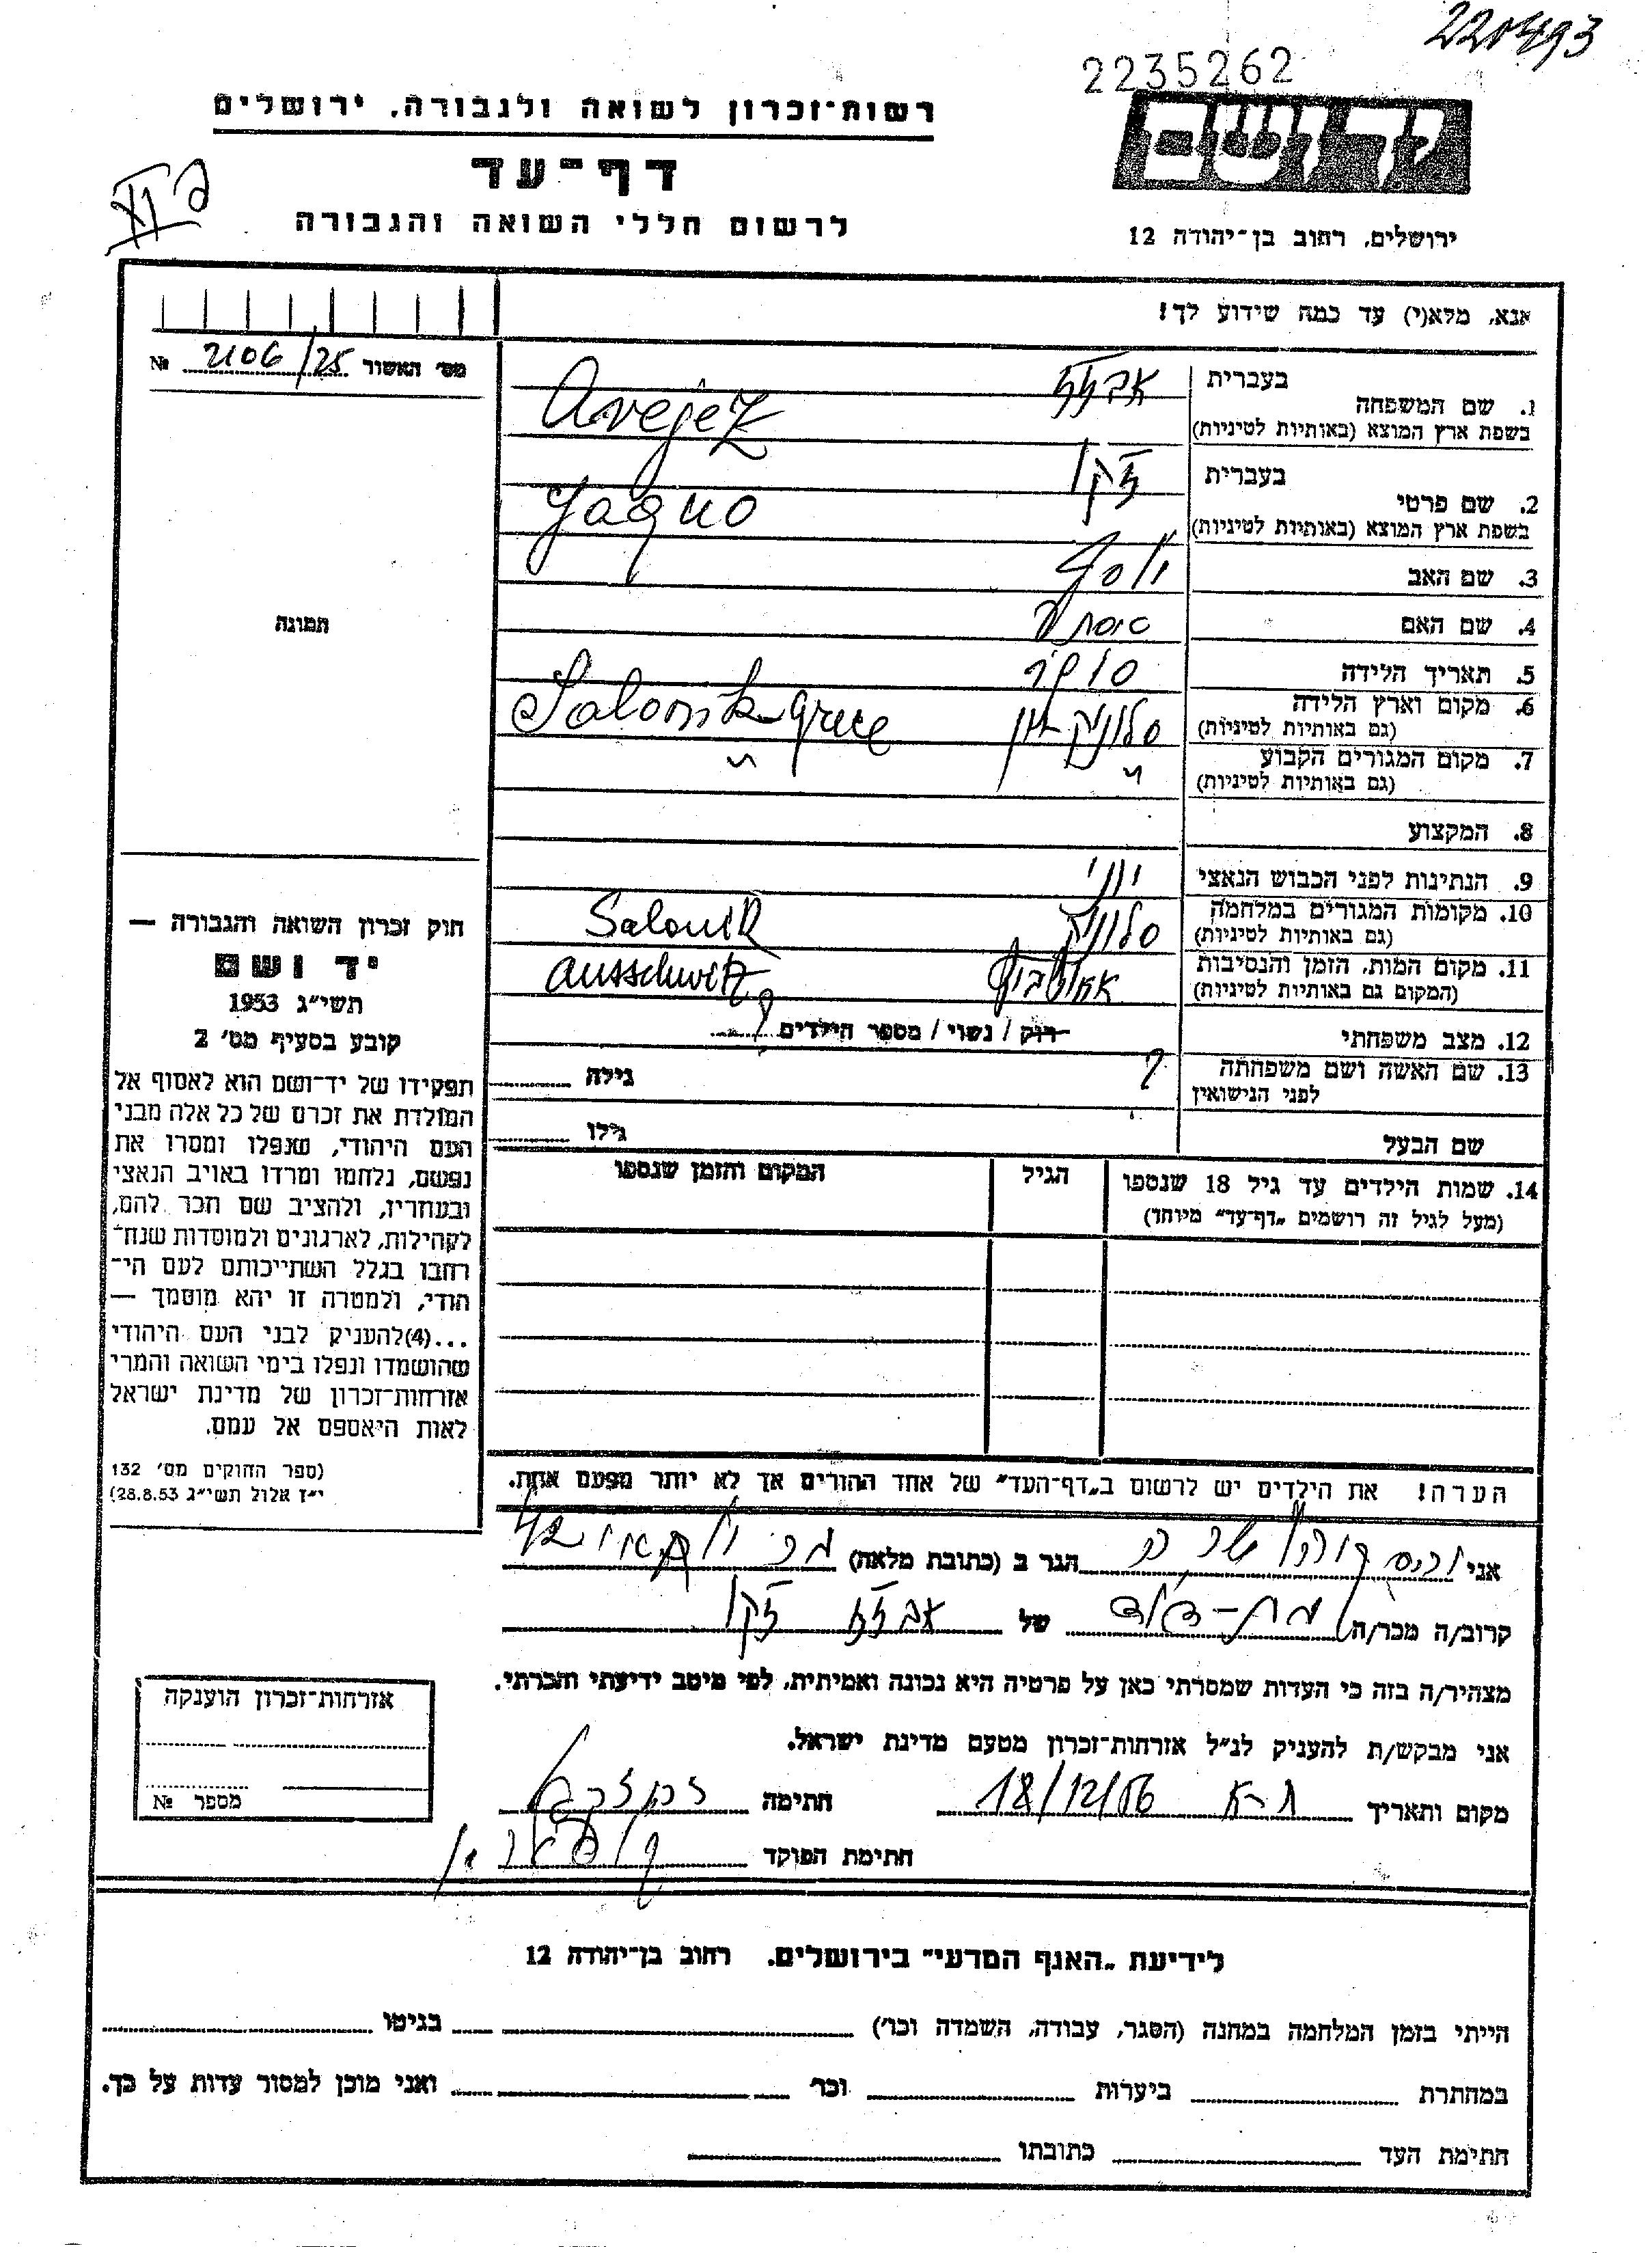 220493
2235262
רשות־זכרון לשואה ולגבורה, ירושלים
דף־עד
לרשום חללי השואה והגבורה
יד ושם
ירושלים, רחוב בן־יהודה 12
אנא, מלא(י) עד כמה שידוע לך!
מס׳ האשור 2106/25 №
בעברית
1. שם המשפחה
בשפת ארץ המוצא (באותיות לטיניות) Avejez
בעברית
2. שם פרטי
בשפת ארץ המוצא (באותיות לטיניות)
3. שם האב יוסף
תמונה
4. שם האם
5. תאריך הלידה
6. מקום וארץ הלידה סלוניקי יון Salonik Grece
(גם באותיות לטיניות)
7. מקום המגורים הקבוע " "
(גם באותיות לטיניות)
8. המקצוע
9. הנתינות לפני הכבוש הנאצי יוני
10. מקומות המגורים במלחמה סלוניקי Salonik
(גם באותיות לטיניות)
11. מקום המות, הזמן והנסיבות אושביץ Ausschwitz
(המקום גם באותיות לטיניות)
12. מצב משפחתי רוק / נשוי / מספר הילדים ?
13. שם האשה ושם משפחתה ? גילה
לפני הנישואין
שם הבעל גילו
14. שמות הילדים עד גיל 18 שנספו הגיל המקום והזמן שנספו
(מעל לגיל זה רושמים „דף־עד״ מיוחד)
חוק זכרון השואה והגבורה —
יד ושם
תשי״ג 1953
קובע בסעיף מס׳ 2
תפקידו של יד־ושם הוא לאסוף אל
המולדת את זכרם של כל אלה מבני
העם היהודי, שנפלו ומסרו את
נפשם, נלחמו ומרדו באויב הנאצי
ובעוזריו, ולהציב שם וזכר להם,
לקהילות, לארגונים ולמוסדות שנח־
רבו בגלל השתייכותם לעם הי־
הודי, ולמטרה זו יהא מוסמך —
...(4)להעניק לבני העם היהודי
שהושמדו ונפלו בימי השואה והמרי
אזרחות־זכרון של מדינת ישראל
לאות היאספם אל עמם.
(ספר החוקים מס׳ 132
י״ז אלול תשי״ג 28.8.53)
הערה! את הילדים יש לרשום ב„דף־העד״ של אחד ההורים אך לא יותר מפעם אחת.
אני הגר ב (כתובת מלאה)
קרוב/ה מכר/ה בת-דוד של
מצהיר/ה בזה כי העדות שמסרתי כאן על פרטיה היא נכונה ואמיתית, לפי מיטב ידיעתי והכרתי.
אני מבקש/ת להעניק לנ״ל אזרחות־זכרון מטעם מדינת ישראל.
מקום ותאריך ת-א 18/12/56 חתימה
חתימת הפוקד
אזרחות־זכרון הוענקה
מספר №
לידיעת „האגף המדעי״ בירושלים. רחוב בן־יהודה 12
הייתי בזמן המלחמה במחנה (הסגר, עבודה, השמדה וכר׳) בגיטו
במחתרת ביערות וכר׳ ואני מוכן למסור עדות על כך.
חתימת העד כתובתו